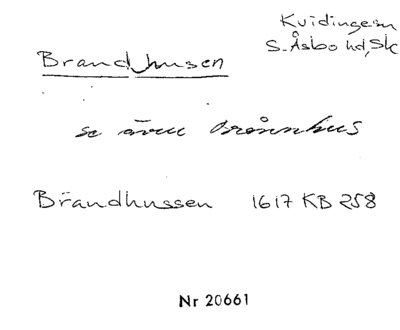 Kvidinge sn
S. Åsbo hd, Sk
Brandhusen
se även Brännhus
Brändhussen 1617 KB 258
Nr 20661